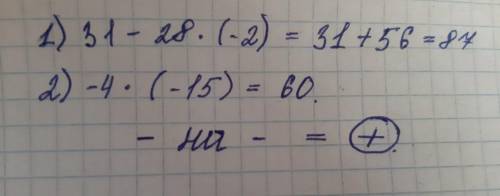 1) 31 - 28 · (-2) = 31 + 56 = 87
2) -4 · (-15) = 60.
- на - = +.